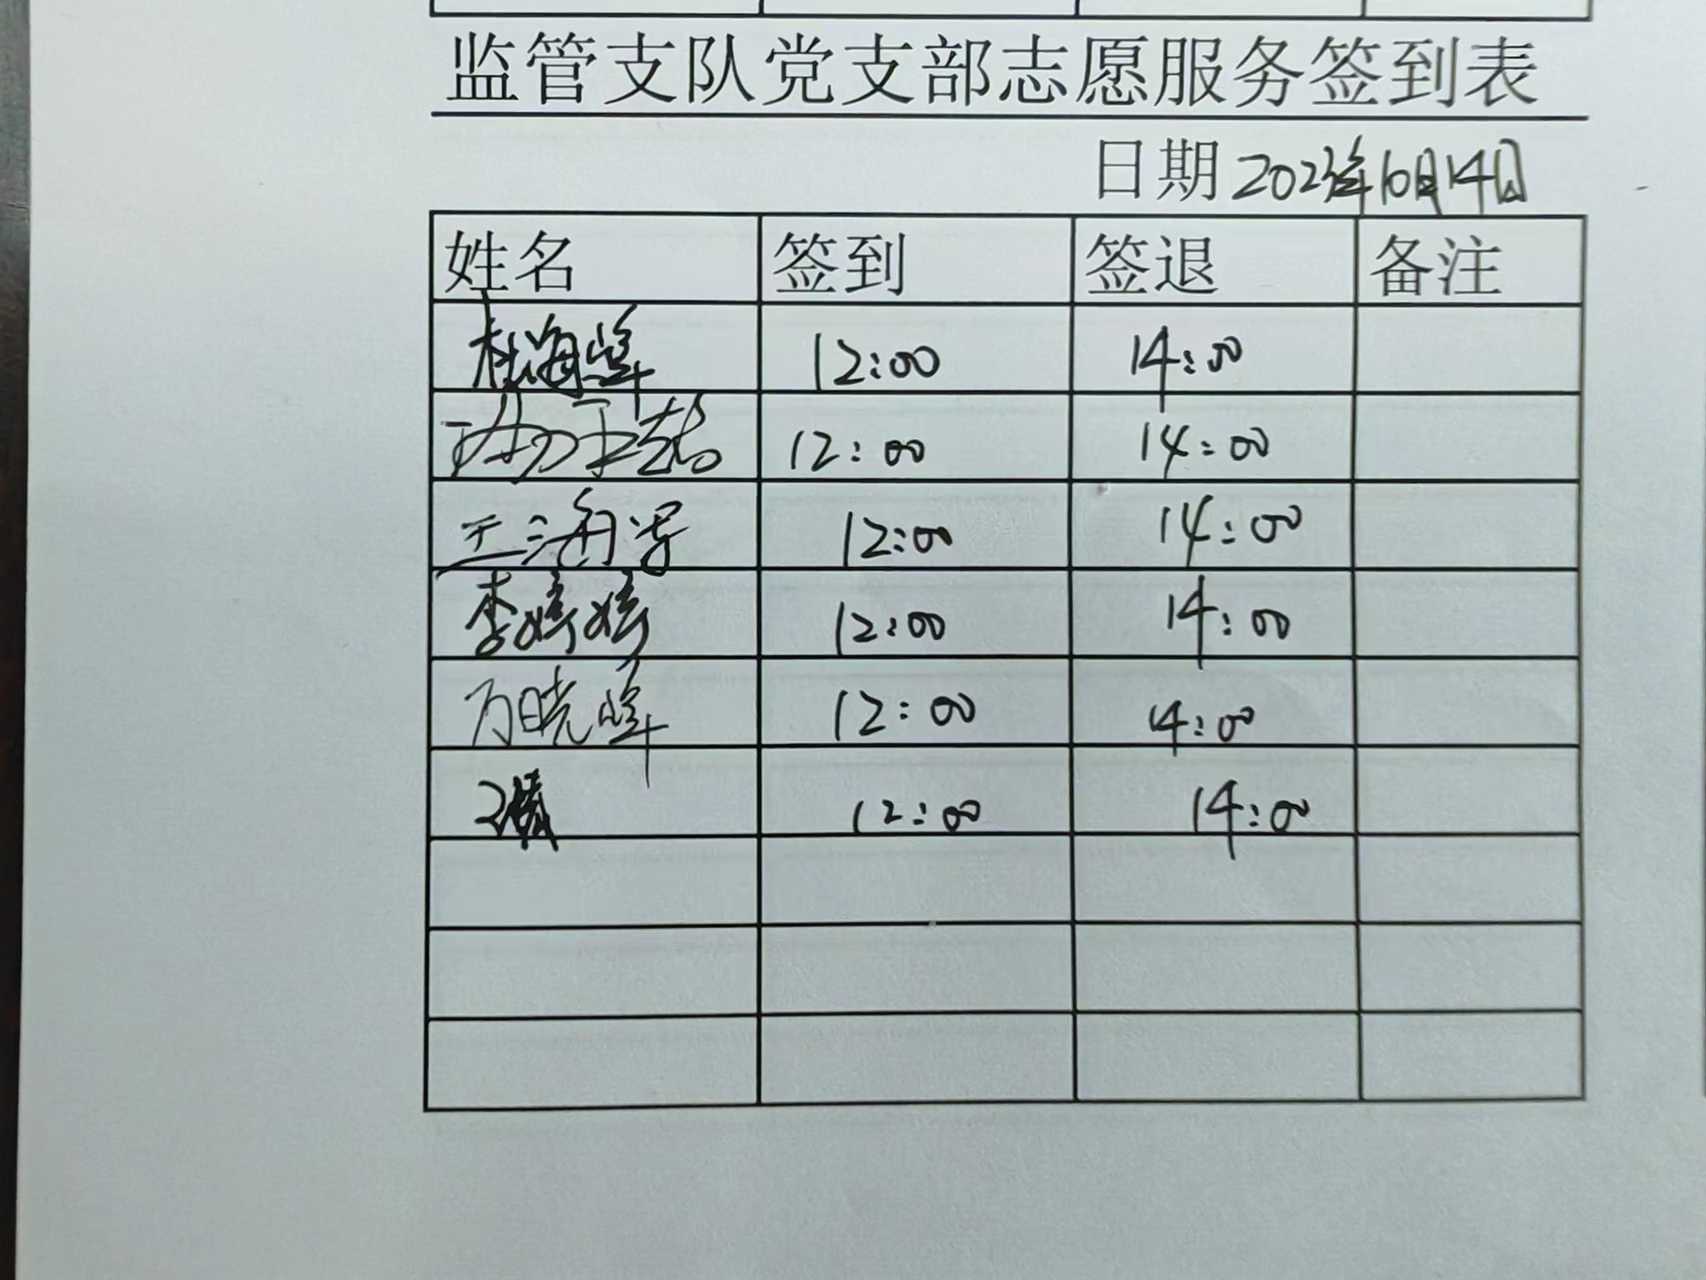 监管支队党支部志愿服务签到表
日期 2023年10月14日
姓名 签到 签退 备注
杜海峰 12:00 14:00
12:00 14:00
王海军 12:00 14:00
李婷婷 12:00 14:00
万晓峰 12:00 14:00
12:00 14:00